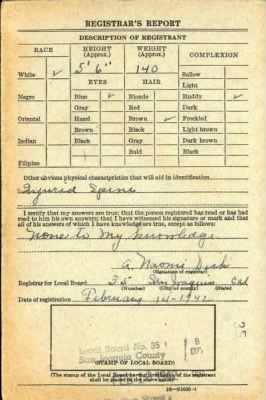 REGISTRAR'S REPORT
DESCRIPTION OF REGISTRANT
RACE HEIGHT (Approx.) WEIGHT (Approx.) COMPLEXION
5' 6" 140 Sallow
White ✓ EYES HAIR Light
Negro Blue ✓ Blonde Ruddy ✓
Gray Red Dark
Oriental Hazel Brown ✓ Freckled
Brown Black Light brown
Indian Black Gray Dark brown
Bald Black
Filipino
Other obvious physical characteristics that will aid in identification
Injured Spine
I certify that my answers are true; that the person registered has read or has had
read to him his own answers; that I have witnessed his signature or mark and that
all of his answers of which I have knowledge are true, except as follows:
None to My knowledge
A. Naomi
(Signature of registrar)
Registrar for Local Board 35 San Joaquin Cal
(Number) (City or county) (State)
Date of registration February 14-1942
Local Board No. 35
San Joaquin County
(STAMP OF LOCAL BOARD)
(The stamp of the Local Board having jurisdiction of the registrant
shall be placed in the above space.)